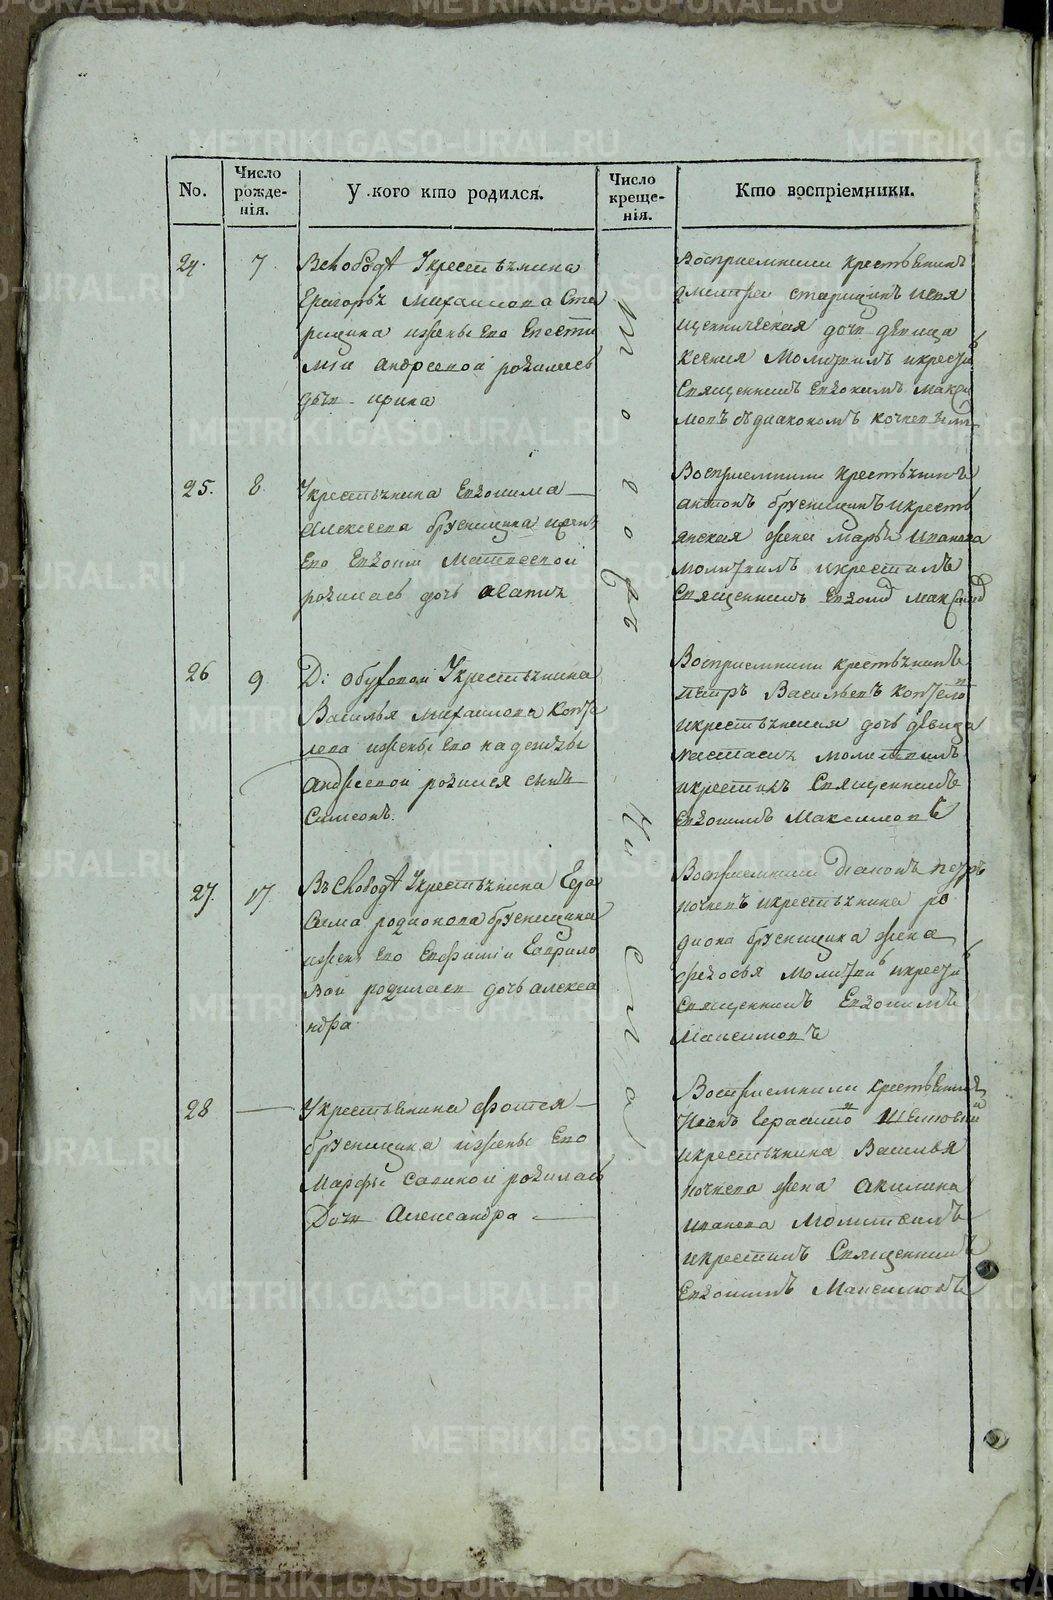 No.
Число
рожде-
нія.
У кого кто родился.
Число
креще-
нія.
Кто воспріемники.
24.
7
Вслободѣ Укрестьянина
Григорья михаилова Ста
рицина ижены Его
мии андреевой родилась
дочь ирина
Восприемники крестьянинъ
дмитреи старицинъ исвя
щенническая дочь девица
ксения Молитвилъ икрестилъ
Священникъ Евдокимъ Макси
мовъ сьдиакономъ
25.
8.
Укрестьянина Евдокима
Алексеева брусницина ижены
Его Евдокии Матвеевой
родилась дочь
Восприемники крестьянинъ
антонъ брусницинъ икресть
янская жена марья иванова
молитвилъ икрестилъ
Священникъ Евдоким Максимов
того же числа
26
9
Д: обуховои Укрестьянина
Василья михаилова Копте
лова ижены Его надежды
андреевой родился сынъ
Симеонъ.
Восприемники крестьянинъ
петръ Васильевъ Коптелов
икрестьянская дочь девица
настасия молитвилъ
икрестилъ Священникъ
Евдокимъ Максимовъ
27.
17
Въ Слободѣ Укрестьянина Гера
сима родионова брусницина
ижены Его Евфимии Гаврило
вои родилась дочь алекса
ндра
Восприемники Дiаконъ петръ
икрестьянина ро
диона брусницина жена
федосья Молитвил икрестил
священникъ Евдокимъ
Максимовъ
28
Укрестьянина фотея
брусницина ижены Его
Марфы Савиной родилась
Дочь Александра
Восприемники крестьянинъ
Иванъ Герасимов
икрестьянина Василья
жена акилина
иванова Молитвилъ
икрестилъ Священникъ
Евдокимъ Максимовъ
METRIKI.GASO-URAL.RU